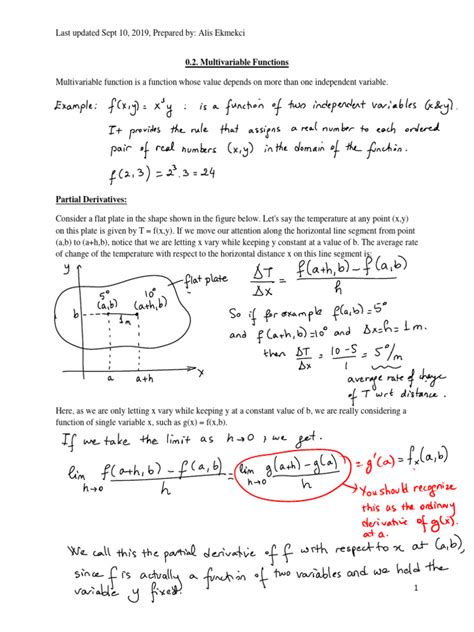 Last updated Sept 10, 2019, Prepared by: Alis Ekmekci
0.2. Multivariable Functions
Multivariable function is a function whose value depends on more than one independent variable.
Example: f(x,y) = x³y : is a function of two independent variables (x&y).
It provides the rule that assigns a real number to each ordered
pair of real numbers (x,y) in the domain of the function.
f(2,3) = 2³.3 = 24
Partial Derivatives:
Consider a flat plate in the shape shown in the figure below. Let's say the temperature at any point (x,y)
on this plate is given by T = f(x,y). If we move our attention along the horizontal line segment from point
(a,b) to (a+h,b), notice that we are letting x vary while keeping y constant at a value of b. The average rate
of change of the temperature with respect to the horizontal distance x on this line segment is:
y
flat plate
5° 10°
(a,b) (a+h,b)
b
1m
a a+h x
ΔT/Δx = f(a+h,b) – f(a,b) / h
So if for example f(a,b)=5°
and f(a+h,b)=10° and Δx=h=1m.
then ΔT/Δx = 10-5/1 = 5°/m
average rate of change
of T wrt distance.
Here, as we are only letting x vary while keeping y at a constant value of b, we are really considering a
function of single variable x, such as g(x) = f(x,b).
If we take the limit as h→0, we get.
lim h→0 f(a+h,b) – f(a,b) / h = lim h→0 g(a+h) – g(a) / h = g'(a) = fₓ(a,b)
You should recognize
this as the ordinary
derivative of g(x).
at a.
We call this the partial derivative of f with respect to x at (a,b),
since f is actually a function of two variables and we held the
variable y fixed.
1